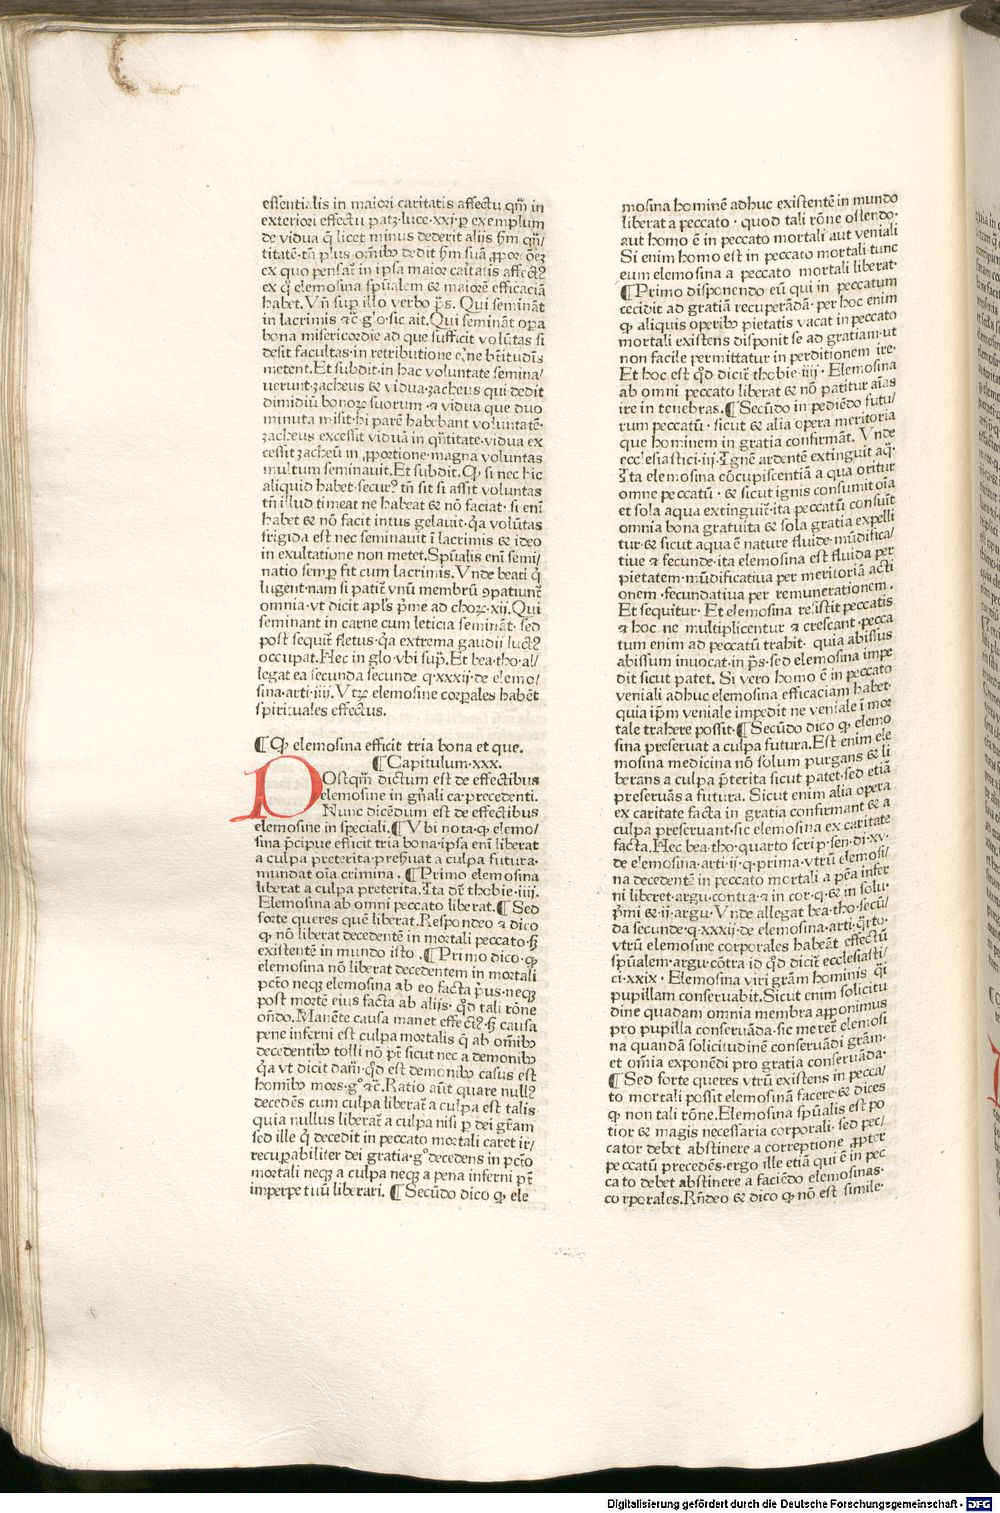 essentialis in maiori caritatis affectu qm̄ in
exteriori effectu patꝫ·luce·xxj·ꝑ exemplum
de vidua q̄ licet minus dederit alijs ẜm qn̄/
titatē·tn̄ plus om̄ibꝰ dedit ẜm suā ꝓpor·oēꝫ
ex quo pensat᷑ in ipsa maior caritatis affectꝰ
ex q̄ elemosina spūalem & maiorē efficaciā
habet. Vn̄ sup̄ illo verbo p̄s. Qui seminān̄t
in lacrimis ⁊c̄·glo·sic ait. Qui seminān̄t oꝑa
bona misericordie ad que sufficit volūtas si
desit facultas·in retributione et̄ne bt̄itudīs
metent. Et subdit·in hac voluntate semina/
uerunt·zacheus & vidua·zacheus qui dedit
dimidiū bonoꝝ suorum ·⁊ vidua que duo
minuta misit·hi parē habebant voluntatē·
zacheus excessit viduā in qn̄titate·vidua ex
cessit zacheū in ꝓportione·magna voluntas
multum seminauit. Et subdit. Ꝙ si nec hic
aliquid habet·securꝰ tn̄ sit si assit voluntas
tn̄ illud timeat ne habeat & nō faciat· si enī
habet & nō facit intus gelauit·q̄a volūtas
frigida est nec seminauit ī lacrimis & ideo
in exultatione non metet. Spūalis enī semi/
natio semꝑ fit cum lacrimis. Vnde beati q̄
lugent·nam si patit᷑ vnū membrū ꝯpatiunt᷑
omnia·vt dicit apl̄s p̄me ad choꝝ·xij. Qui
seminant in carne cum leticia seminān̄t· sed
post sequit᷑ fletus·q̄a extrema gaudij luctꝰ
occupat. Hec in glo·vbi sup̄. Et bea·tho·al/
legat ea secunda secunde q·xxxij·de elemo/
sina·arti·iiij. Vtꝝ elemosine corꝑales habēt
spirituales effectus.
¶ Ꝙ elemosina efficit tria bona et que.
¶Capitulum·xxx.
POstqm̄ dictum est de effectibus
elemosine in gn̄ali ca·precedenti.
Nunc dicēdum est de effectibus
elemosine in speciali.¶Vbi nota·ꝙ elemo/
sina p̄cipue efficit tria bona·ipsa enī liberat
a culpa preterita·preẜuat a culpa futura·
mundat oīa crimina . ¶Primo elemosina
liberat a culpa preterita. Ita dr̄ thobie·iiij.
Elemosina ab omni peccato liberat.¶Sed
forte queres quē liberat. Respondeo ⁊ dico
ꝙ nō liberat decedentē in mortali peccato·ẜꝫ
existentē in mundo isto .¶Primo dico·ꝙ
elemosina nō liberat decedentem in mortali
pctō neqꝫ elemosina ab eo facta p̄us·neqꝫ
post mortē eius facta ab alijs· qd̄ tali rōne
on̄do. Manēte causa manet effectꝰ·ẜꝫ causa
pene inferni est culpa mortalis q̄ ab om̄ibꝰ
decedentibꝰ tolli nō pt̄ sicut nec a demonibꝰ
q̄a vt dicit dam̄·qd̄ est demonibꝰ casus est
homībꝰ mors·gͦ ⁊c̄. Ratio aūt quare nullꝰ
decedēs cum culpa liberat᷑ a culpa est talis
quia nullus liberat᷑ a culpa nisi ꝑ dei gr̄am
sed ille q̄ decedit in peccato mortali caret ir/
recuꝑabiliter dei gratia·gͦ decedens in pctō
mortali neqꝫ a culpa neqꝫ a pena inferni pt̄
imperpetuū liberari. ¶Secūdo dico ꝙ ele
mosina hominē adhuc existentē in mundo
liberat a peccato · quod tali rōne ostendo·
aut homo ē in peccato mortali aut veniali
Si enim homo est in peccato mortali tunc
eum elemosina a peccato mortali liberat·
¶Primo disponendo eū qui in peccatum
cecidit ad gratiā recuperādā· per hoc enim
ꝙ aliquis operibꝰ pietatis vacat in peccato
mortali existens disponit se ad gratiam·ut
non facile permittatur in perditionem ire·
Et hoc est qd̄ dicit᷑ thobie·iiij· Elemosina
ab omni peccato liberat & nō patitur aīas
ire in tenebras.¶Secūdo in pediēdo futu/
rum peccatū · sicut & alia opera meritoria
que hominem in gratia confirmāt. Vnde
ecclesiastici·iij·Ignē ardentē extinguit aq̄·
Ita elemosina cōcupiscentiā a qua oritur
omne peccatū · & sicut ignis consumit oīa
et sola aqua extinguit᷑·ita peccatū consūit
omnia bona gratuita & sola gratia expelli
tur·& sicut aqua ē nature fluide·mūdifica/
tiue ⁊ fecunde·ita elemosina est fluida per
pietatem·mūdificatiua per meritoriā acti
onem ·fecundatiua per remunerationem.
Et sequitur· Et elemosina resistit peccatis
⁊ hoc ne multiplicentur ⁊ crescant·pecca
tum enim ad peccatū trahit· quia abissus
abissum inuocat·in p̄s·sed elemosina impe
dit sicut patet. Si vero homo ē in peccato
veniali adhuc elemosina efficaciam habet·
quia ip̄m veniale impedit ne veniale ī mor
tale trahere possit·¶Secūdo dico ꝙ elemo
sina preseruat a culpa futura. Est enim ele
mosina medicina nō solum purgans & li
berans a culpa p̄terita sicut patet·sed etiā
preseruās a futura. Sicut enim alia opera
ex caritate facta in gratia confirmant & a
culpa preseruant·sic elemosina ex caritate
facta. Hec bea·tho·quarto scri p·sen·di·xv·
de elemosina·arti·ij·q·prima·vtrū elemosi/
na decedentē in peccato mortali a pēa infer
ni liberet·argu·contra·⁊ in cor·q·& in solu·
p̄mi & ij·argu· Vnde allegat bea·tho·secū/
da secunde·q·xxxij·de elemosina·arti·q̄rto·
vtrū elemosine corporales habeāt effectū
spūalem·argu·cōtra id qd̄ dicit᷑ ecclesiasti/
ci·xxix · Elemosina viri gr̄am hominis q̄i
pupillam conseruabit. Sicut enim solicitu
dine quadam omnia membra apponimus
pro pupilla conseruāda·sic meret᷑ elemosi
na quandā solicitudinē conseruādi gr̄am·
et om̄ia exponēdi pro gratia conseruāda·
¶Sed forte queres vtrū existens in pecca/
to mortali possit elemosinā facere·& dices
ꝙ non tali rōne. Elemosina spūalis est po
tior & magis necessaria corporali· sed pec/
cator debet abstinere a correptione ꝓpter
peccatū precedēs·ergo ille etiā qui ē in pec
cato debet abstinere a faciēdo elemosinas·
corporales. Rn̄deo & dico ꝙ nō est simile·
Digitalisierung gefördert durch die Deutsche Forschungsgemeinschaft - DFG